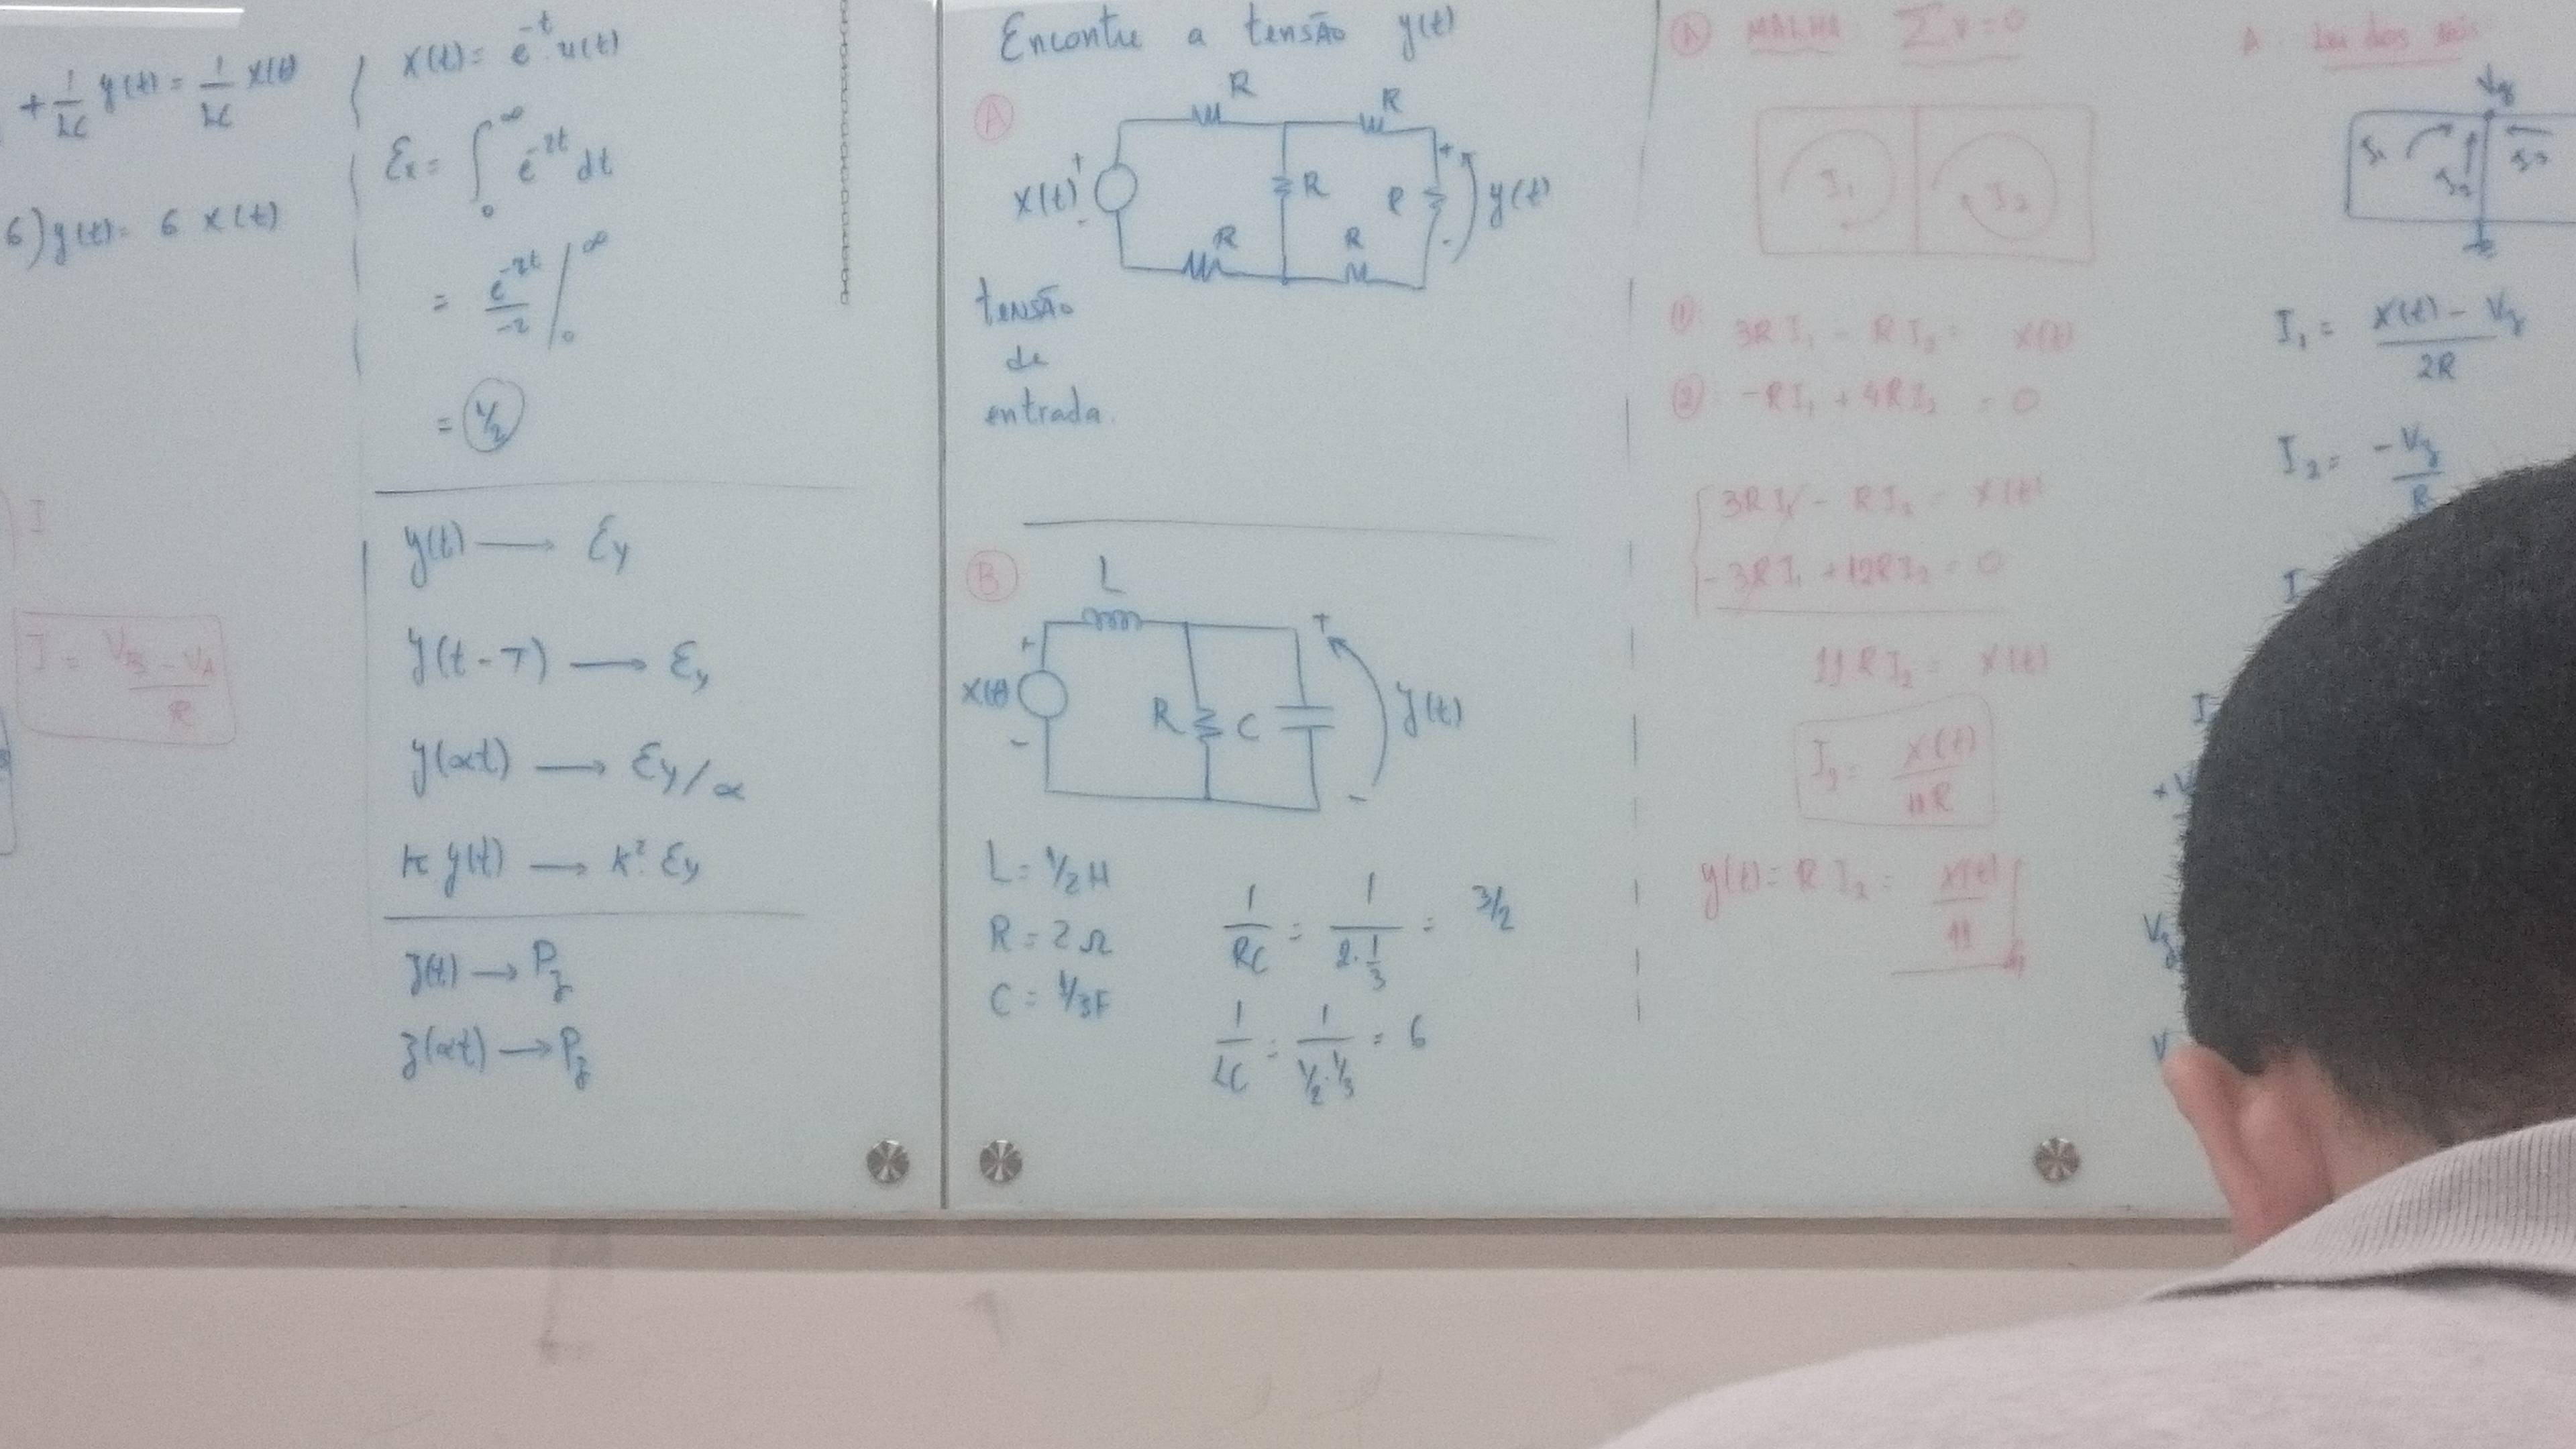 + 1/LC y(t) = 1/LC x(t)
6) y(t) = 6 x(t)
I
I = VB - VA / R
x(t) = e^-t u(t)
Ex = ∫₀^∞ e^-2t dt
= e^-2t / -2 |₀^∞
= 1/2
y(t) → Ey
y(t-T) → Ey
y(αt) → Ey/α
k y(t) → k². Ey
z(t) → Pz
z(αt) → Pz
Encontre a tensão y(t)
A
R R
x(t) + - R R + - y(t)
R R
tensão
de
entrada.
B
L
x(t) + - R C + - y(t)
L = 1/2 H
R = 2 Ω
C = 1/3 F
1/RC = 1/(2·1/3) = 3/2
1/LC = 1/(1/2·1/3) = 6
A MALHA Σ V = 0
I1 I2
1 3R I1 - R I2 = x(t)
2 -R I1 + 4R I2 = 0
3R I1 - R I2 = x(t)
-3R I1 + 12R I2 = 0
11 R I2 = x(t)
I2 = x(t) / 11R
y(t) = R I2 = x(t) / 11
A Lei dos nós
Vz
I1 I2 I3
I1 = x(t) - Vz / 2R
I2 = -Vz / R